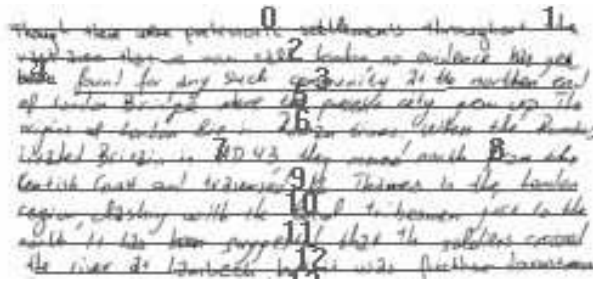 Though there were prehistoric settlements throughout the
vast area that we now call London no evidence has yet
been found for any such community at the northern end
of London Bridge where the present city grew up. The
origins of London lie in Roman times. When the Romans
invaded Britain in AD 43 they moved north from the
Kentish Coast and the Thames in the London
region, clashing with the local tribesmen just to the
north. It has been suggested that the soldiers crossed
the river at Lambeth but it was further